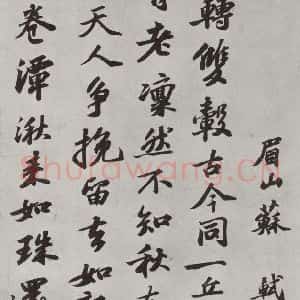 眉山蘇軾
轉雙轂古今同一丘
老凜然不知秋
天人爭挽留去如
卷潭湫來如珠還
Shufawang.CN